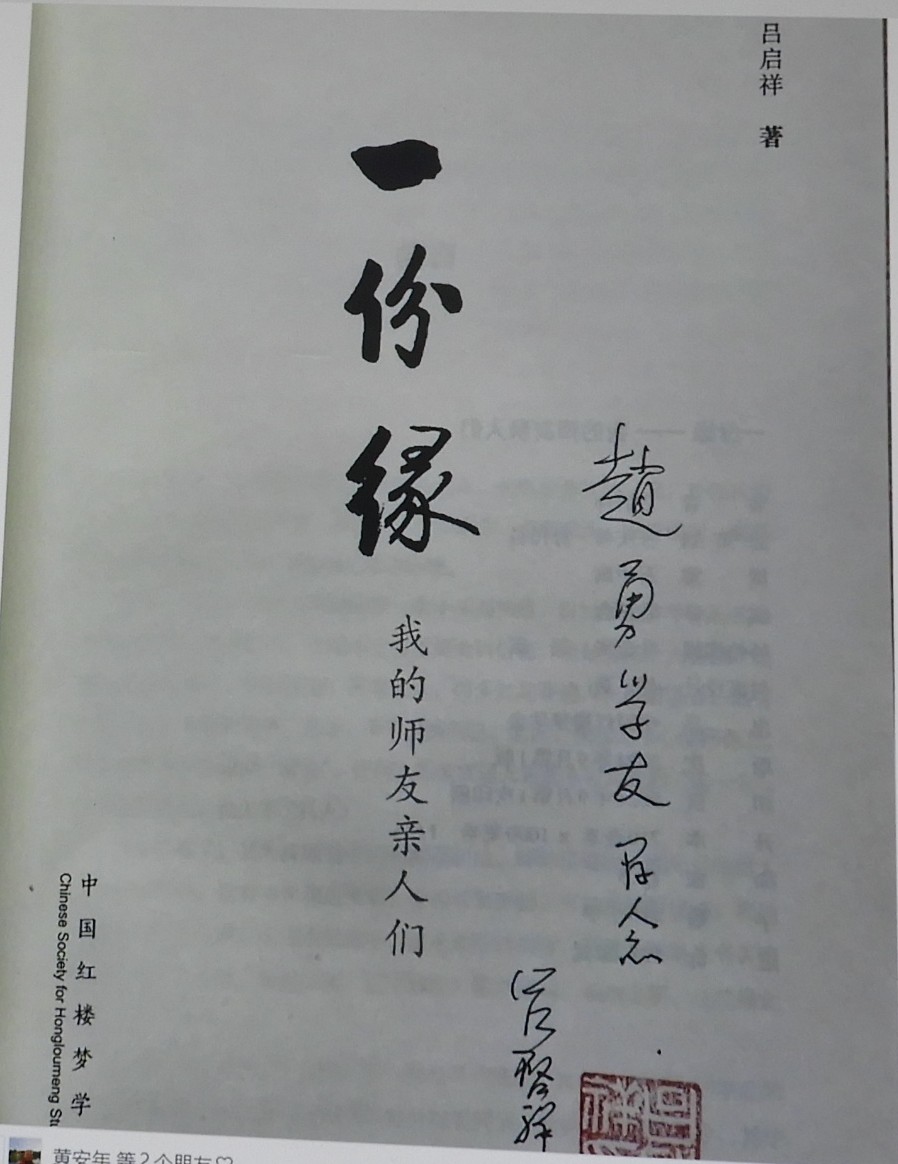 吕启祥 著
一份缘
我的师友亲人们
趙勇学友存念
启祥
中国红楼梦学
Chinese Society for Hongloumeng Stu
黄安年 等2个朋友♡